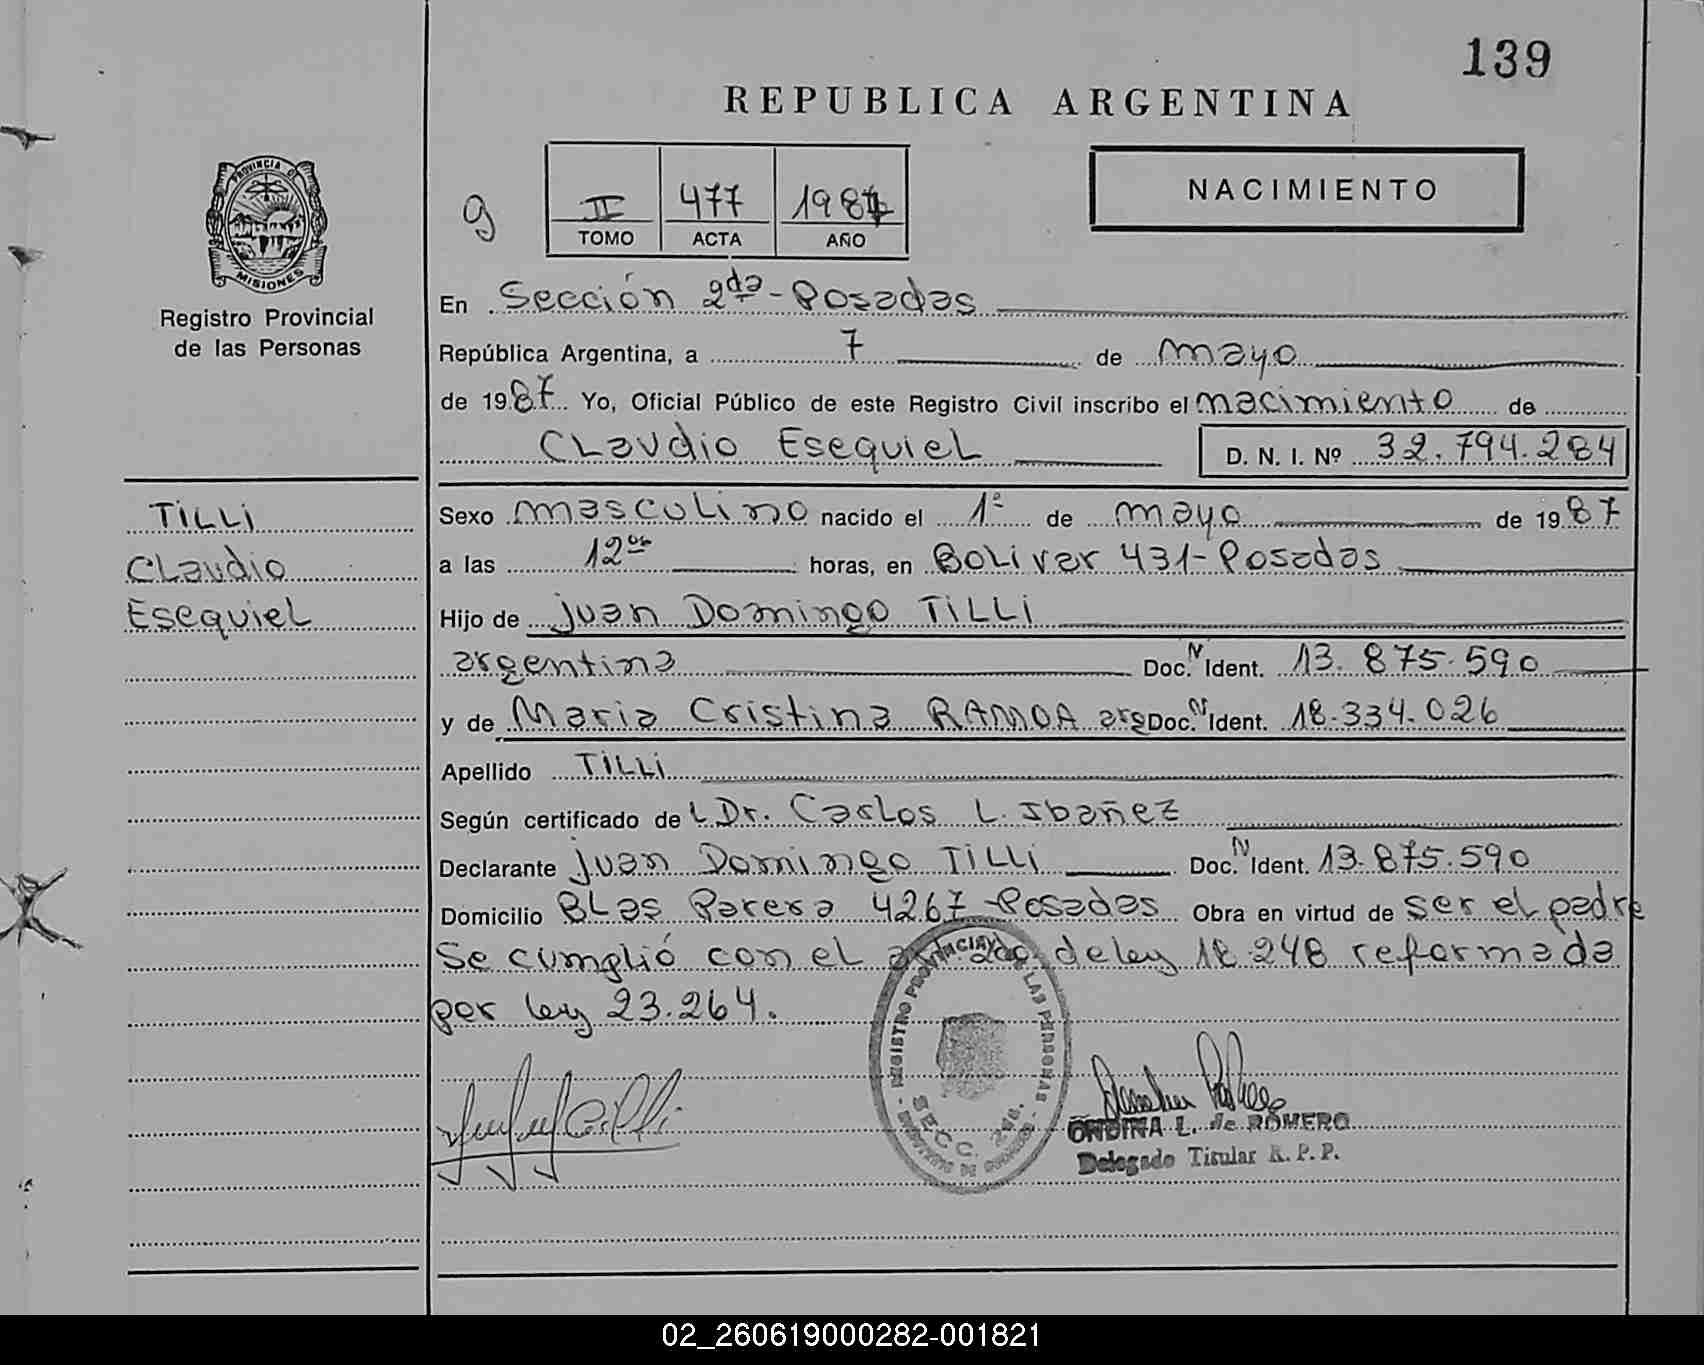 139
REPUBLICA ARGENTINA
PROVINCIA D
MISIONES
Registro Provincial
de las Personas
9
II 477 1987
TOMO ACTA AÑO
NACIMIENTO
En Sección 2da - Posadas
República Argentina, a 7 de mayo
de 1987 Yo, Oficial Público de este Registro Civil inscribo el nacimiento de
Claudio Esequiel D. N. I. Nº 32.794.284
TILLI
Claudio
Esequiel
Sexo masculino nacido el 1º de mayo de 1987
a las 12 horas, en Bolivar 431 - Posadas
Hijo de Juan Domingo TILLI
argentina Doc. N Ident. 13.875.590
y de Maria Cristina RAMOA arg Doc. N Ident. 18.334.026
Apellido TILLI
Según certificado de L Dr. Carlos L. Ibañez
Declarante Juan Domingo TILLI Doc. N Ident. 13.875.590
Domicilio Blas Parera 4267 - Posadas Obra en virtud de ser el padre
Se cumplió con el de ley 18.248 reformada
por ley 23.264.
REGISTRO PROVINCIAL LAS PERSONAS
SECC. 2da.
ONDINA L. de ROMERO
Delegado Titular R. P. P.
02_260619000282-001821